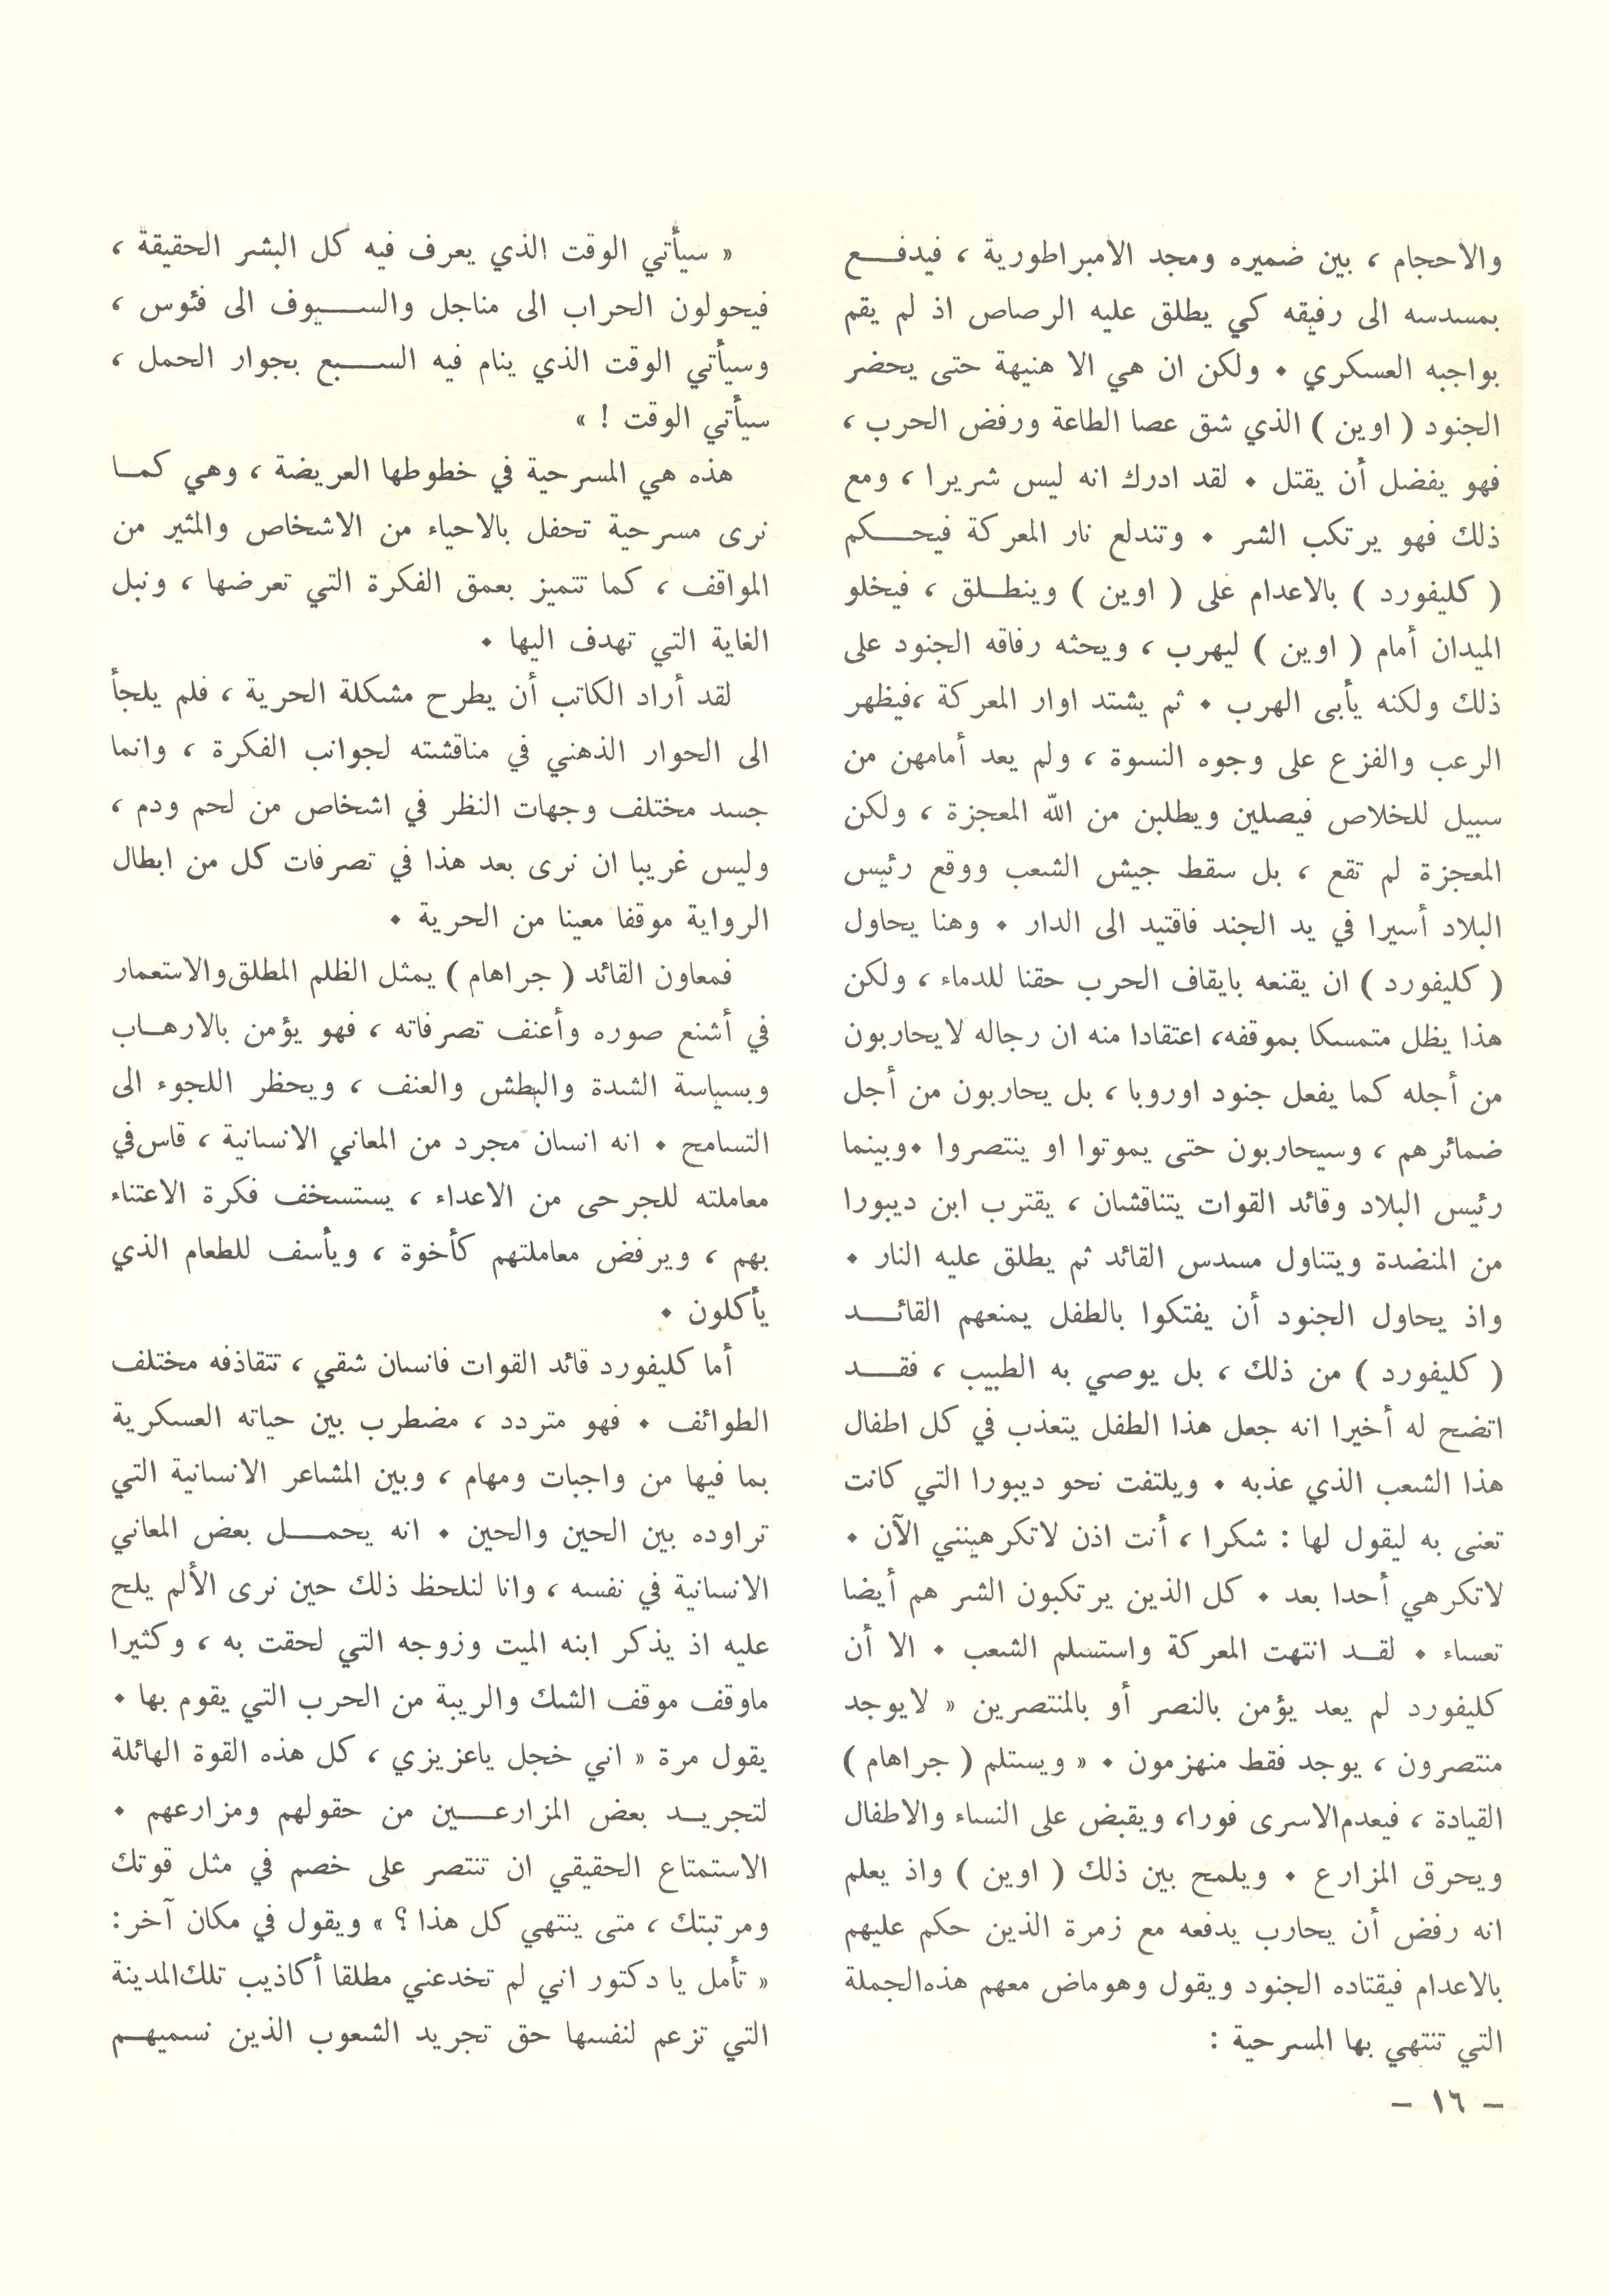 والاحجام ، بين ضميره ومجد الامبراطورية ، فيدفع
بمسدسه الى رفيقه كي يطلق عليه الرصاص اذ لم يقم
بواجبه العسكري ٠ ولكن ان هي الا هنيهة حتى يحضر
الجنود ( اوين ) الذي شق عصا الطاعة ورفض الحرب ،
فهو يفضل أن يقتل ٠ لقد ادرك انه ليس شريرا ، ومع
ذلك فهو يرتكب الشر ٠ وتندلع نار المعركة فيحكم
( كليفورد ) بالاعدام على ( اوين ) وينطلق ، فيخلو
الميدان أمام ( اوين ) ليهرب ، ويحثه رفاقه الجنود على
ذلك ولكنه يأبى الهرب ٠ ثم يشتد اوار المعركة ،فيظهر
الرعب والفزع على وجوه النسوة ، ولم يعد أمامهن من
سبيل للخلاص فيصلين ويطلبن من الله المعجزة ، ولكن
المعجزة لم تقع ، بل سقط جيش الشعب ووقع رئيس
البلاد أسيرا في يد الجند فاقتيد الى الدار ٠ وهنا يحاول
( كليفورد ) ان يقنعه بايقاف الحرب حقنا للدماء ، ولكن
هذا يظل متمسكا بموقفه، اعتقادا منه ان رجاله لايحاربون
من أجله كما يفعل جنود اوروبا ، بل يحاربون من أجل
ضمائرهم ، وسيحاربون حتى يموتوا او ينتصروا ٠وبينما
رئيس البلاد وقائد القوات يتناقشان ، يقترب ابن ديبورا
من المنضدة ويتناول مسدس القائد ثم يطلق عليه النار ٠
واذ يحاول الجنود أن يفتكوا بالطفل يمنعهم القائد
( كليفورد ) من ذلك ، بل يوصي به الطبيب ، فقد
اتضح له أخيرا انه جعل هذا الطفل يتعذب في كل اطفال
هذا الشعب الذي عذبه ٠ ويلتفت نحو ديبورا التي كانت
تعنى به ليقول لها : شكرا ، أنت اذن لاتكرهينني الآن ٠
لاتكرهي أحدا بعد ٠ كل الذين يرتكبون الشر هم أيضا
تعساء ٠ لقد انتهت المعركة واستسلم الشعب ٠ الا أن
كليفورد لم يعد يؤمن بالنصر أو بالمنتصرين « لايوجد
منتصرون ، يوجد فقط منهزمون ٠ » ويستلم ( جراهام )
القيادة ، فيعدم الاسرى فورا، ويقبض على النساء والاطفال
ويحرق المزارع ٠ ويلمح بين ذلك ( اوين ) واذ يعلم
انه رفض أن يحارب يدفعه مع زمرة الذين حكم عليهم
بالاعدام فيقتاده الجنود ويقول وهوماض معهم هذه الجملة
التي تنتهي بها المسرحية :
« سيأتي الوقت الذي يعرف فيه كل البشر الحقيقة ،
فيحولون الحراب الى مناجل والسيوف الى فئوس ،
وسيأتي الوقت الذي ينام فيه السبع بجوار الحمل ،
سيأتي الوقت ! »
هذه هي المسرحية في خطوطها العريضة ، وهي كما
نرى مسرحية تحفل بالاحياء من الاشخاص والمثير من
المواقف ، كما تتميز بعمق الفكرة التي تعرضها ، ونبل
الغاية التي تهدف اليها ٠
لقد أراد الكاتب أن يطرح مشكلة الحرية ، فلم يلجأ
الى الحوار الذهني في مناقشته لجوانب الفكرة ، وانما
جسد مختلف وجهات النظر في اشخاص من لحم ودم ،
وليس غريبا ان نرى بعد هذا في تصرفات كل من ابطال
الرواية موقفا معينا من الحرية ٠
فمعاون القائد ( جراهام ) يمثل الظلم المطلق والاستعمار
في أشنع صوره وأعنف تصرفاته ، فهو يؤمن بالارهاب
وبسياسة الشدة والبطش والعنف ، ويحظر اللجوء الى
التسامح ٠ انه انسان مجرد من المعاني الانسانية ، قاس في
معاملته للجرحى من الاعداء ، يستسخف فكرة الاعتناء
بهم ، ويرفض معاملتهم كأخوة ، ويأسف للطعام الذي
يأكلون ٠
أما كليفورد قائد القوات فانسان شقي ، تتقاذفه مختلف
الطوائف ٠ فهو متردد ، مضطرب بين حياته العسكرية
بما فيها من واجبات ومهام ، وبين المشاعر الانسانية التي
تراوده بين الحين والحين ٠ انه يحمل بعض المعاني
الانسانية في نفسه ، وانا لنلحظ ذلك حين نرى الألم يلح
عليه اذ يذكر ابنه الميت وزوجه التي لحقت به ، وكثيرا
ماوقف موقف الشك والريبة من الحرب التي يقوم بها ٠
يقول مرة « اني خجل ياعزيزي ، كل هذه القوة الهائلة
لتجريد بعض المزارعين من حقولهم ومزارعهم ٠
الاستمتاع الحقيقي ان تنتصر على خصم في مثل قوتك
ومرتبتك ، متى ينتهي كل هذا ؟ » ويقول في مكان آخر :
« تأمل يا دكتور اني لم تخدعني مطلقا أكاذيب تلك المدينة
التي تزعم لنفسها حق تجريد الشعوب الذين نسميهم
– ١٦ –